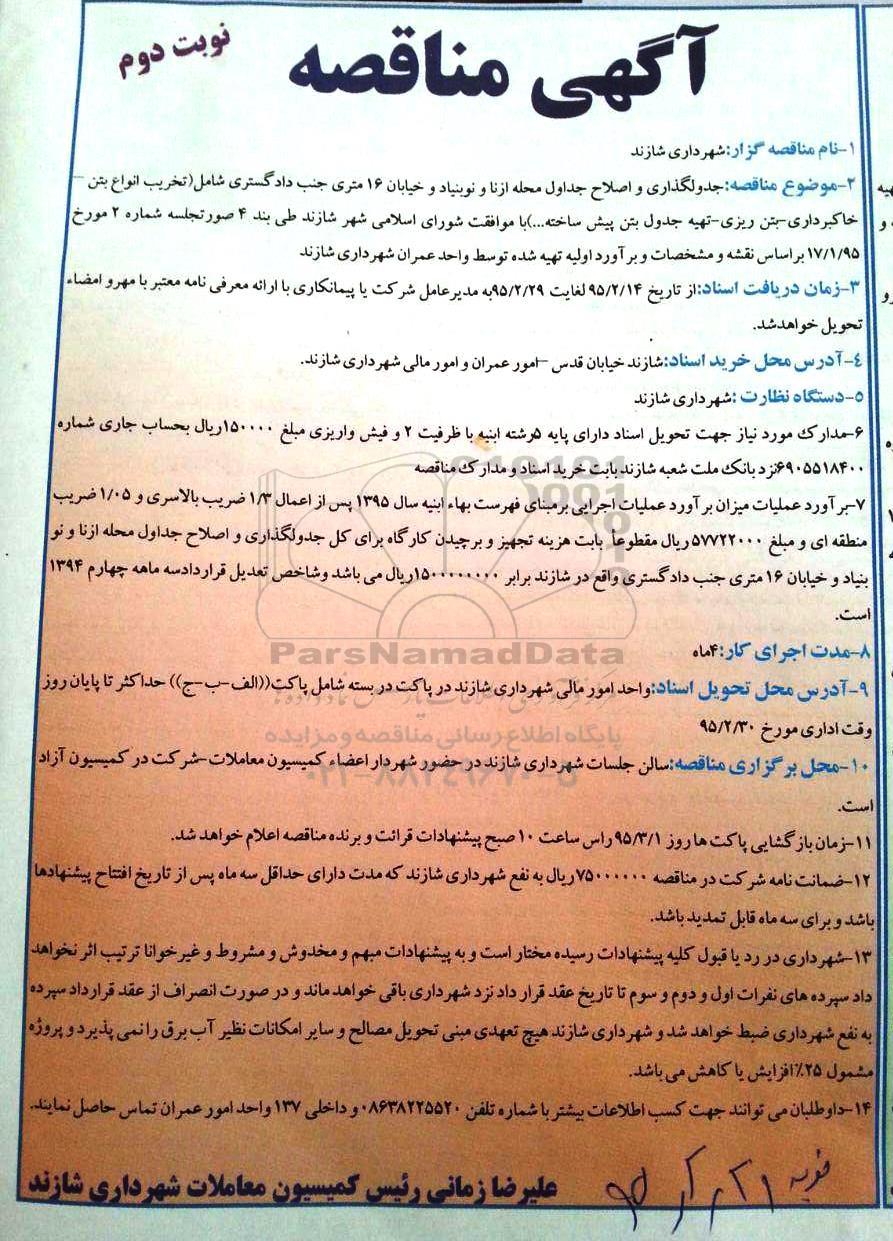 نوبت دوم
آگهی مناقصه
۱-نام مناقصه گزار:شهرداری شازند
۲-موضوع مناقصه:جدولگذاری و اصلاح جداول محله ازنا و نوبنیاد و خیابان ۱۶ متری جنب دادگستری شامل(تخریب انواع بتن –
خاکبرداری-بتن ریزی-تهیه جدول بتن پیش ساخته...)با موافقت شورای اسلامی شهر شازند طی بند ۴ صورتجلسه شماره ۲ مورخ
۱۷/۱/۹۵ براساس نقشه و مشخصات و برآورد اولیه تهیه شده توسط واحد عمران شهرداری شازند
۳-زمان دریافت اسناد:از تاریخ ۹۵/۲/۱۴ لغایت ۹۵/۲/۲۹به مدیرعامل شرکت یا پیمانکاری با ارائه معرفی نامه معتبر با مهرو امضاء
تحویل خواهدشد.
۴-آدرس محل خرید اسناد:شازند خیابان قدس –امور عمران و امور مالی شهرداری شازند.
۵-دستگاه نظارت :شهرداری شازند
۶-مدارک مورد نیاز جهت تحویل اسناد دارای پایه ۵رشته ابنیه با ظرفیت ۲ و فیش واریزی مبلغ ۱۵۰۰۰۰ریال بحساب جاری شماره
۶۹۰۵۵۱۸۴۰۰نزد بانک ملت شعبه شازند بابت خرید اسناد و مدارک مناقصه
۷-برآورد عملیات میزان برآورد عملیات اجرایی برمبنای فهرست بهاء ابنیه سال ۱۳۹۵ پس از اعمال ۱/۳ ضریب بالاسری و ۱/۰۵ ضریب
منطقه ای و مبلغ ۵۷۷۲۲۰۰۰ ریال مقطوعاً بابت هزینه تجهیز و برچیدن کارگاه برای کل جدولگذاری و اصلاح جداول محله ازنا و نو
بنیاد و خیابان ۱۶ متری جنب دادگستری واقع در شازند برابر ۱۵۰۰۰۰۰۰۰۰ریال می باشد وشاخص تعدیل قراردادسه ماهه چهارم ۱۳۹۴
است.
ParsNamadData
۸-مدت اجرای کار:۴ماه
۹-آدرس محل تحویل اسناد:واحد امور مالی شهرداری شازند در پاکت در بسته شامل پاکت((الف-ب-ج)) حداکثر تا پایان روز
وقت اداری مورخ ۹۵/۲/۳۰
پایگاه اطلاع رسانی مناقصه و مزایده
۱۰-محل برگزاری مناقصه:سالن جلسات شهرداری شازند در حضور شهردار اعضاء کمیسیون معاملات-شرکت در کمیسیون آزاد
است.
۱۱-زمان بازگشایی پاکت ها روز ۹۵/۳/۱راس ساعت ۱۰ صبح پیشنهادات قرائت و برنده مناقصه اعلام خواهد شد.
۱۲-ضمانت نامه شرکت در مناقصه ۷۵۰۰۰۰۰۰ریال به نفع شهرداری شازند که مدت دارای حداقل سه ماه پس از تاریخ افتتاح پیشنهادها
باشد و برای سه ماه قابل تمدید باشد.
۱۳-شهرداری در رد یا قبول کلیه پیشنهادات رسیده مختار است و به پیشنهادات مبهم و مخدوش و مشروط و غیرخوانا ترتیب اثر نخواهد
داد سپرده های نفرات اول و دوم و سوم تا تاریخ عقد قرار داد نزد شهرداری باقی خواهد ماند و در صورت انصراف از عقد قرارداد سپرده
به نفع شهرداری ضبط خواهد شد و شهرداری شازند هیچ تعهدی مبنی تحویل مصالح و سایر امکانات نظیر آب برق را نمی پذیرد و پروژه
مشمول ۲۵٪افزایش یا کاهش می باشد.
۱۴-داوطلبان می توانند جهت کسب اطلاعات بیشتر با شماره تلفن ۰۸۶۳۸۲۲۵۵۲۰و داخلی ۱۳۷ واحد امور عمران تماس حاصل نمایند.
علیرضا زمانی رئیس کمیسیون معاملات شهرداری شازند